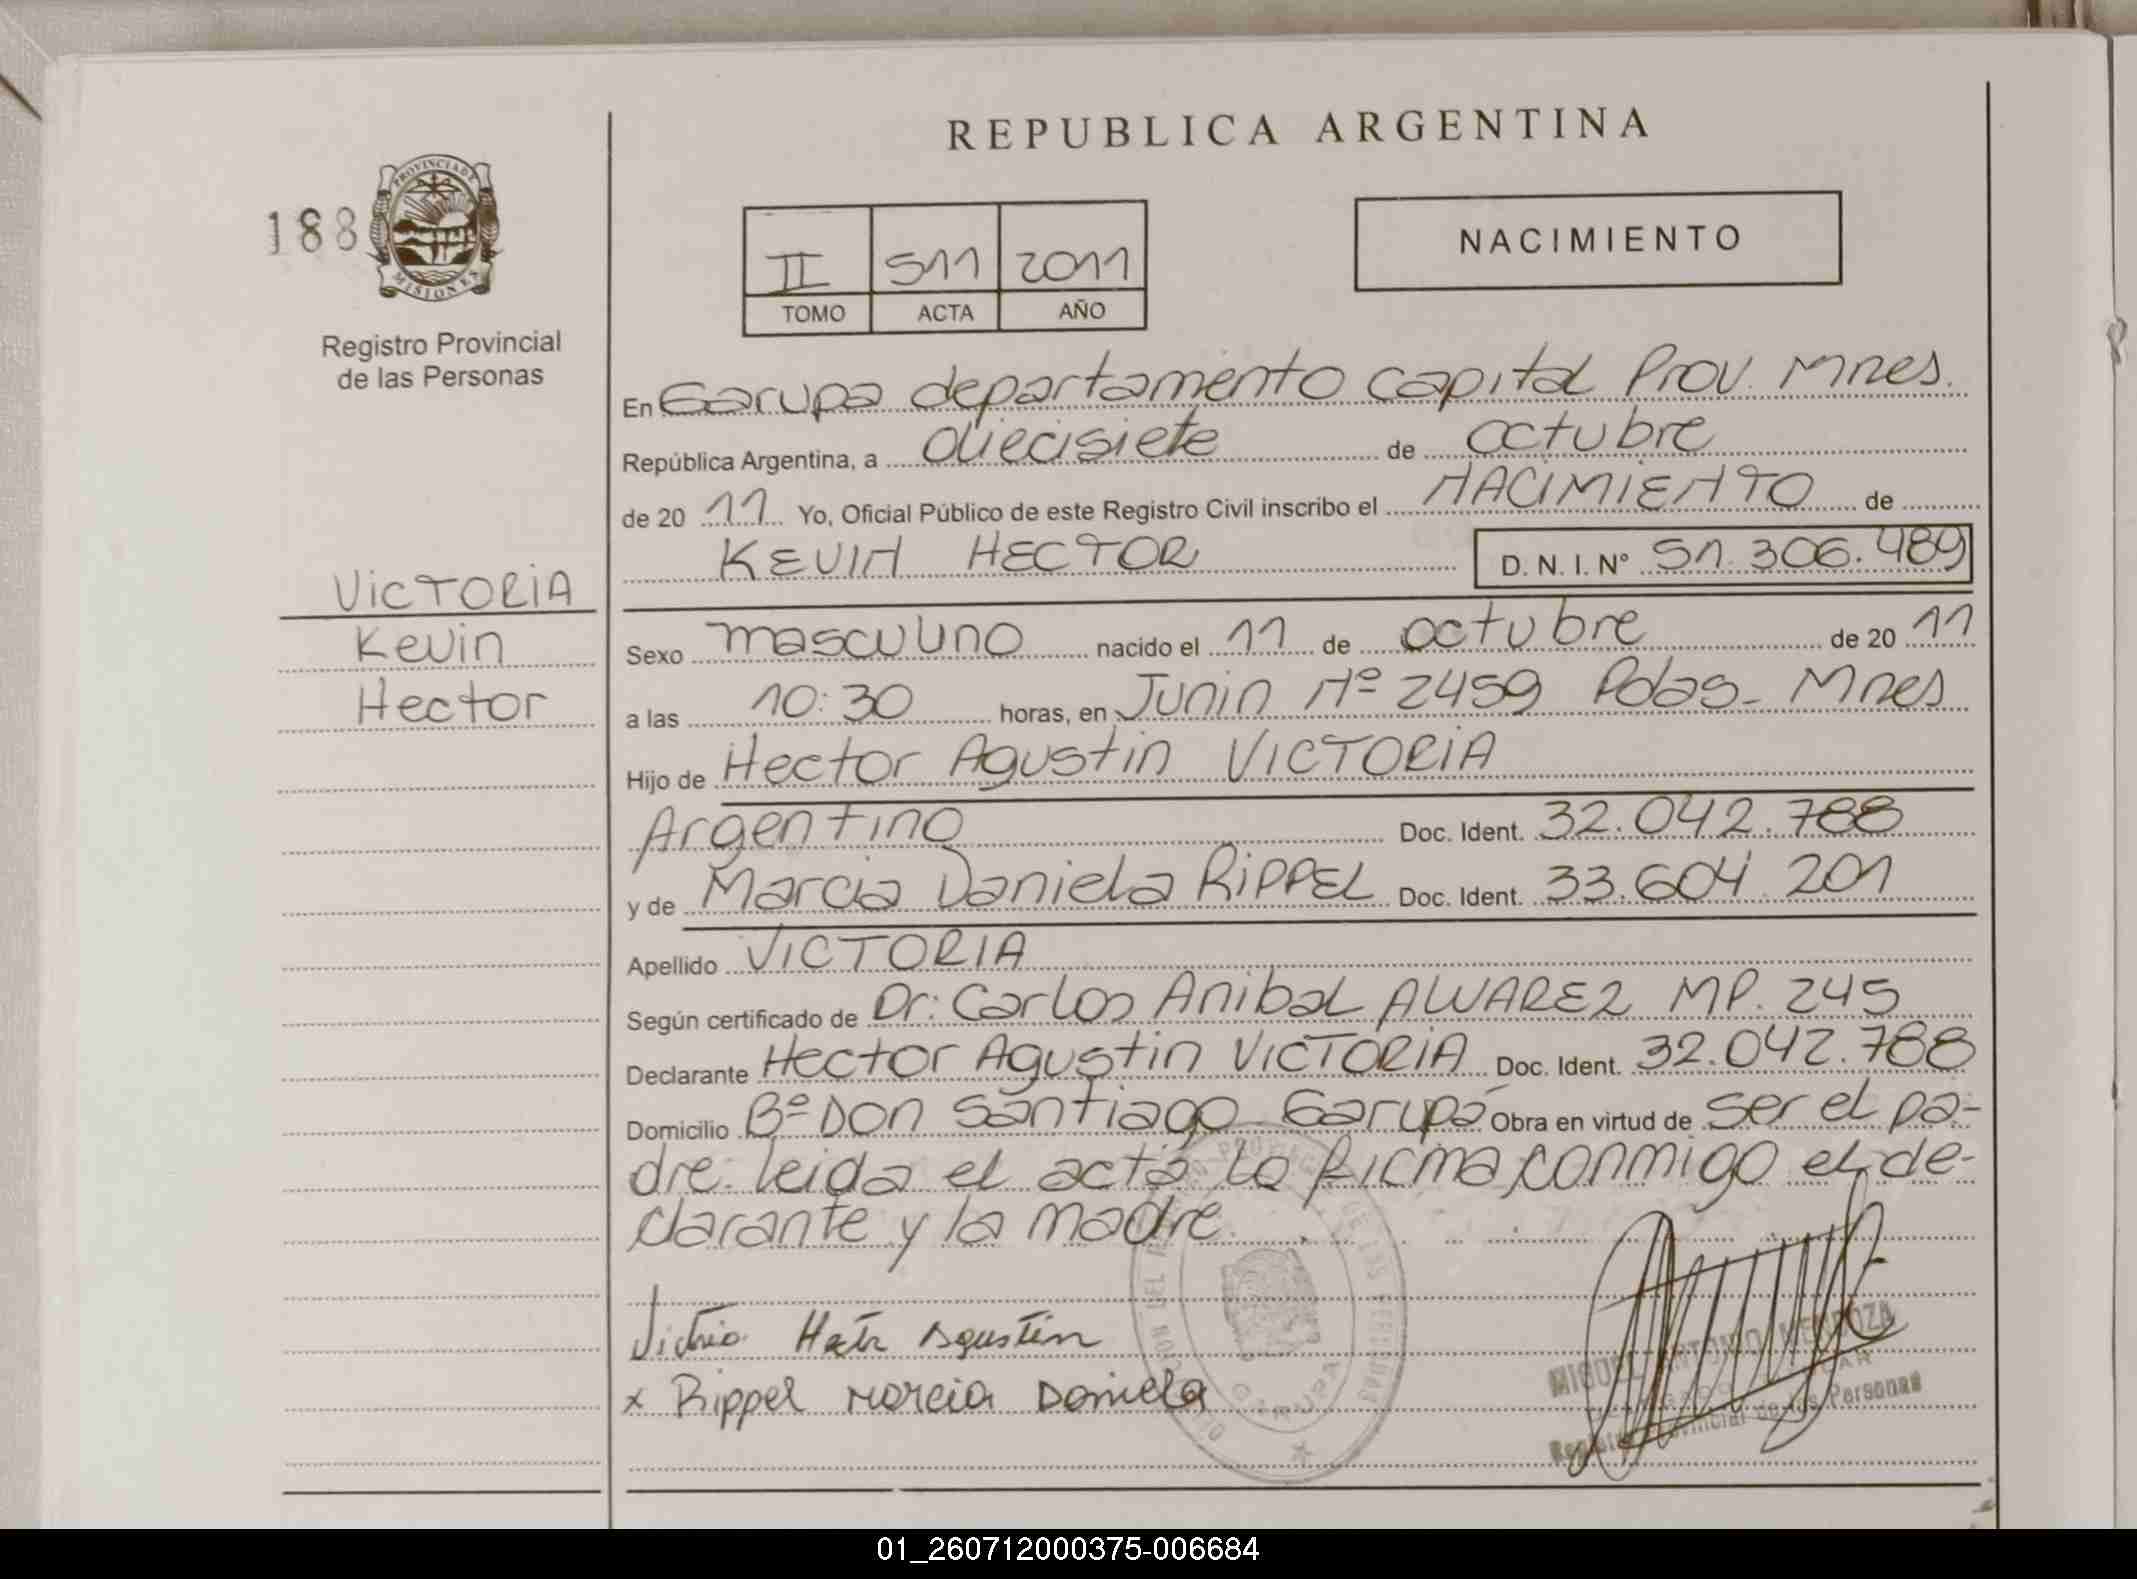 REPUBLICA ARGENTINA
188
PROVINCIA DE
MISIONES
Registro Provincial
de las Personas
II 511 2011
TOMO ACTA AÑO
NACIMIENTO
VICTORIA
Kevin
Hector
En Garupa departamento Capital Prov. Mnes.
República Argentina, a diecisiete de octubre
de 20 11 Yo, Oficial Público de este Registro Civil inscribo el NACIMIENTO de
KEVIN HECTOR D. N. I. N° 51.306.489
Sexo masculino nacido el 11 de octubre de 20 11
a las 10:30 horas, en Junin Nº 2459 Pdas- Mnes
Hijo de Hector Agustin VICTORIA
Argentino Doc. Ident. 32.042.788
y de Marcia Daniela RIPPEL Doc. Ident. 33.604.201
Apellido VICTORIA
Según certificado de Dr: Carlos Anibal ALVAREZ MP. 245
Declarante Hector Agustin VICTORIA Doc. Ident. 32.042.788
Domicilio Bº DON Santiago Garupá Obra en virtud de ser el pa-
dre. leida el acta la firma conmigo el de-
clarante y la madre.
Victoria Hector Agustin
x Rippel Marcia Daniela
GARUPA
MIGUEL ANTONIO MENDOZA
Registro Provincial de las Personas
01_260712000375-006684